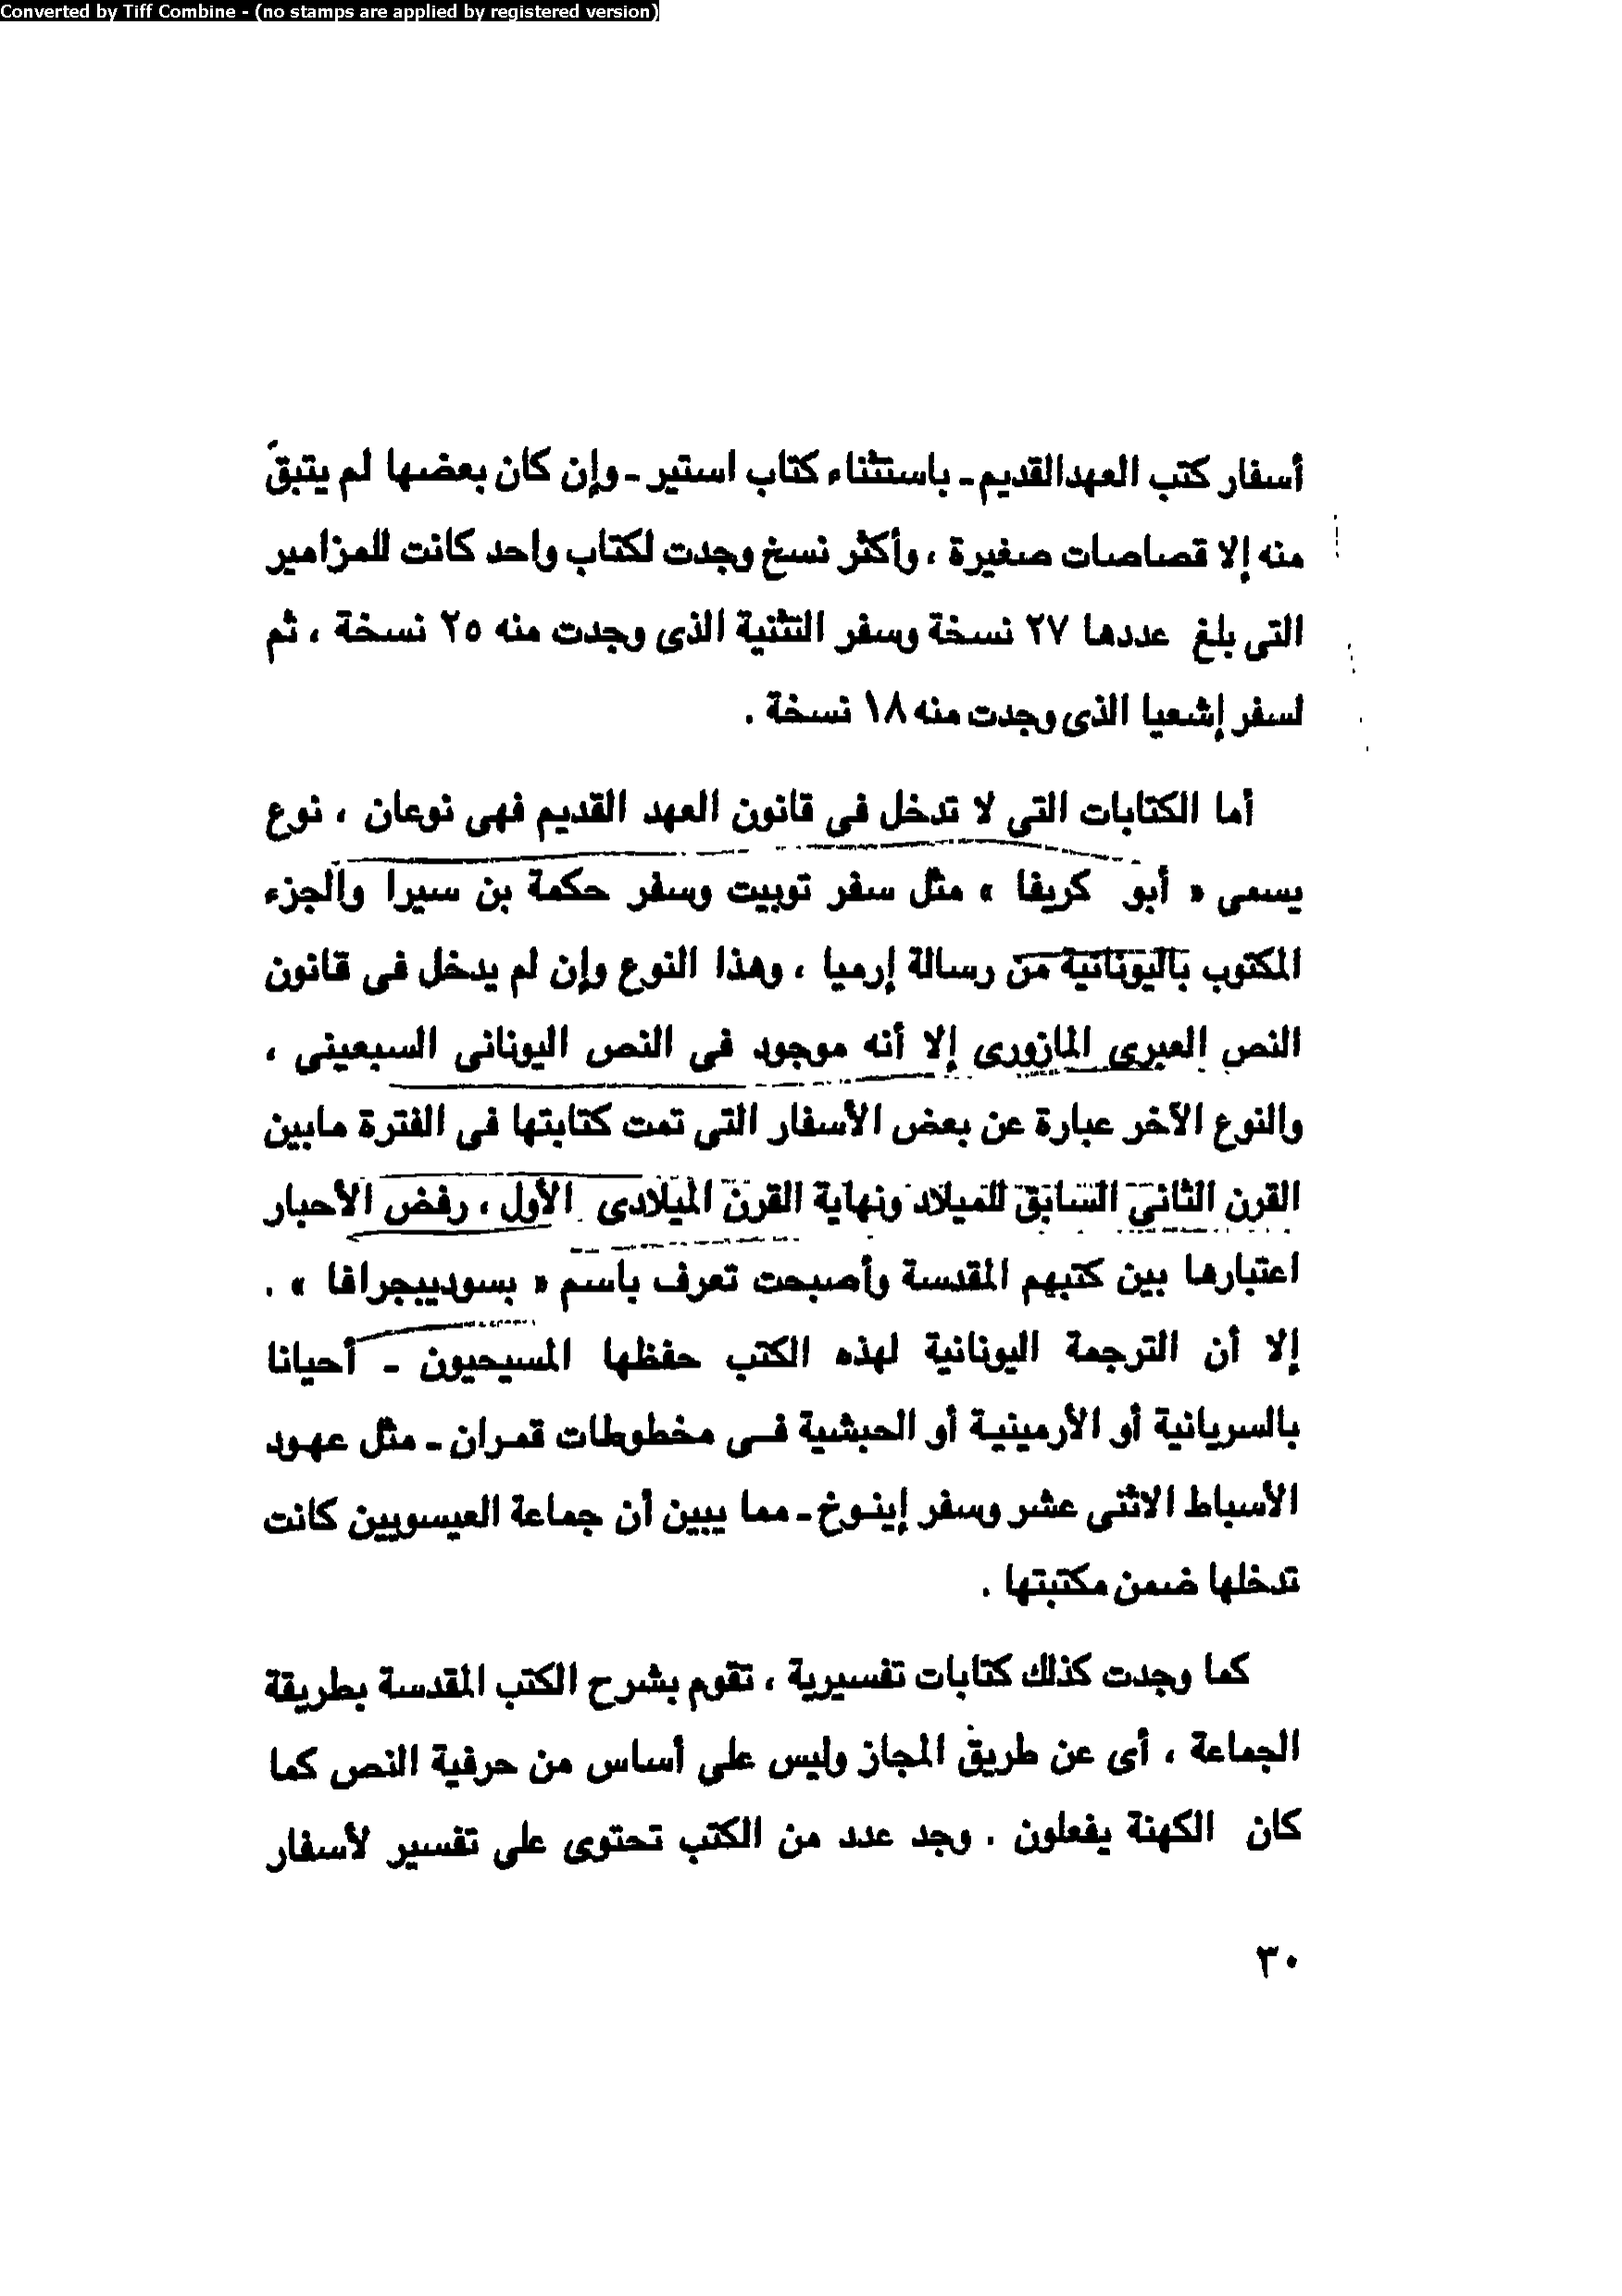 Converted by Tiff Combine - (no stamps are applied by registered version)
أسفار كتب العهدالقديم - باستثناء كتاب استير - وإن كان بعضها لم يتبقَ
منه إلا قصاصات صغيرة ، وأكثر نسخ وجدت لكتاب واحد كانت للمزامير
التى بلغ عددها ٢٧ نسخة وسفر التثنية الذى وجدت منه ٢٥ نسخة ، ثم
لسفر إشعيا الذى وجدت منه ١٨ نسخة .
أما الكتابات التى لا تدخل فى قانون العهد القديم فهى نوعان ، نوع
يسمى « أبو كريفا » مثل سفر توبيت وسفر حكمة بن سيرا والجزء
المكتوب باليونانية من رسالة إرميا ، وهذا النوع وإن لم يدخل فى قانون
النص العبرى المازورى إلا أنه موجود فى النص اليونانى السبعينى ،
والنوع الآخر عبارة عن بعض الأسفار التى تمت كتابتها فى الفترة مابين
القرن الثانى السابق للميلاد ونهاية القرن الميلادى الأول ، رفض الأحبار
اعتبارها بين كتبهم المقدسة وأصبحت تعرف باسم « بسودييجرافا » .
إلا أن الترجمة اليونانية لهذه الكتب حفظها المسيحيون - أحيانا
بالسريانية أو الأرمينية أو الحبشية فى مخطوطات قمران - مثل عهود
الأسباط الاثنى عشر وسفر إينوخ - مما يبين أن جماعة العيسويين كانت
تدخلها ضمن مكتبتها .
كما وجدت كذلك كتابات تفسيرية ، تقوم بشرح الكتب المقدسة بطريقة
الجماعة ، أى عن طريق المجاز وليس على أساس من حرفية النص كما
كان الكهنة يفعلون . وجد عدد من الكتب تحتوى على تفسير لأسفار
٣٠